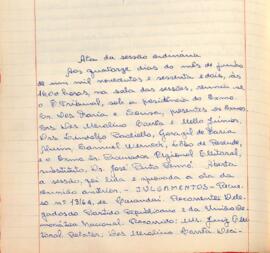 Ata da sessão ordinária
Aos quatorze dias do mês de junho
de um mil novecentos e sessenta e dois, às
16:00 horas, na sala das sessões, reuniu-se
o Tribunal, sob a presidência do Exmo.
Sr. Des. Faria e Sousa, presentes os Exmos.
Srs. Des. Merolino Corrêa e Mello Júnior,
Drs. Lindolfo Paoliello, Gorazil de Faria
Alvim, Samuel Werneck, Cibo de Rezende,
e o Exmo Sr. Procurador Regional Eleitoral,
substituto, Dr. José Pinto Renó. Aberta
a sessão, foi lida e aprovada a ata da
reunião anterior. - JULGAMENTOS - Recur
so nº 13/64, de Guarani. Recorrentes: Dele
gados do Partido Republicano e da União De
mocrática Nacional. Recorrido: MM. Juiz Elei
toral. Relator: Des. Merolino Corrêa. Deci-